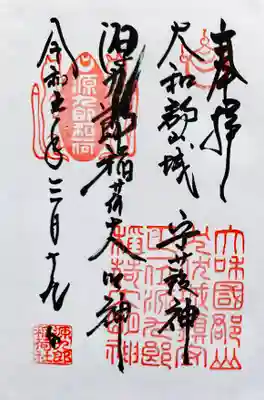 奉拝
大和郡山城
守護神
源九郎稲荷大明神
令和五年三月十九日
源九郎稲荷
大和國郡山
九郎
稲荷大明神
源九郎
稲荷社